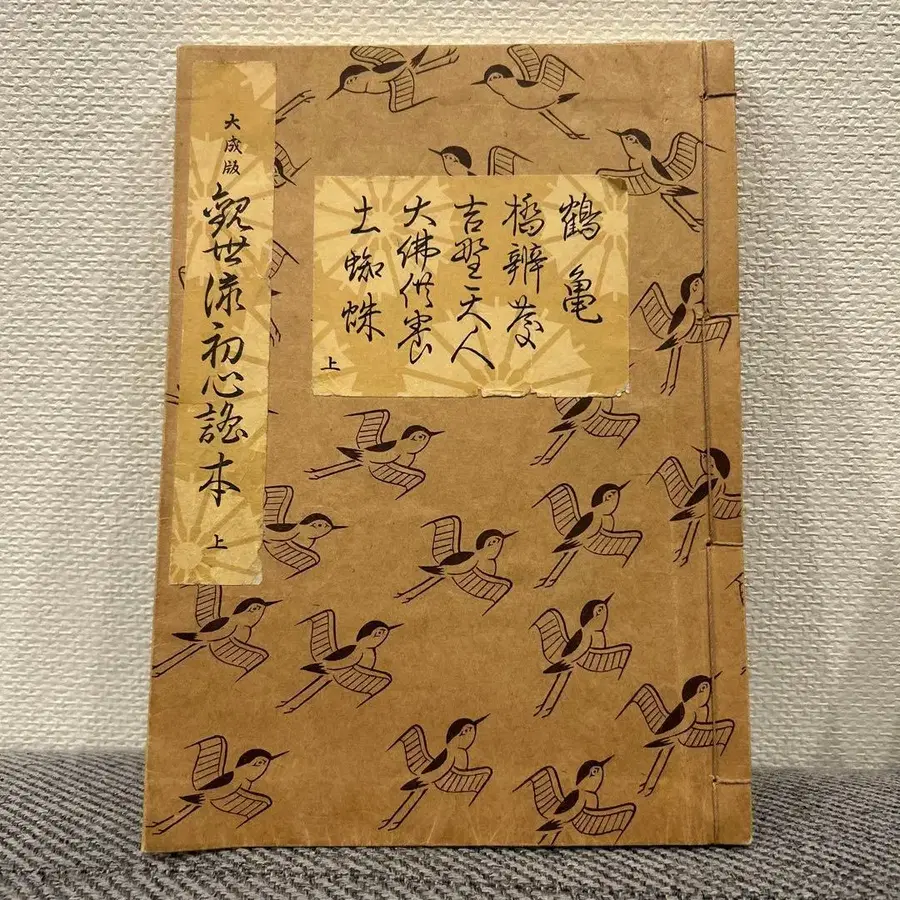 大成版 觀世流初心謠本 上
鶴亀
橋辨慶
吉野天人
大佛供養
土蜘蛛
上